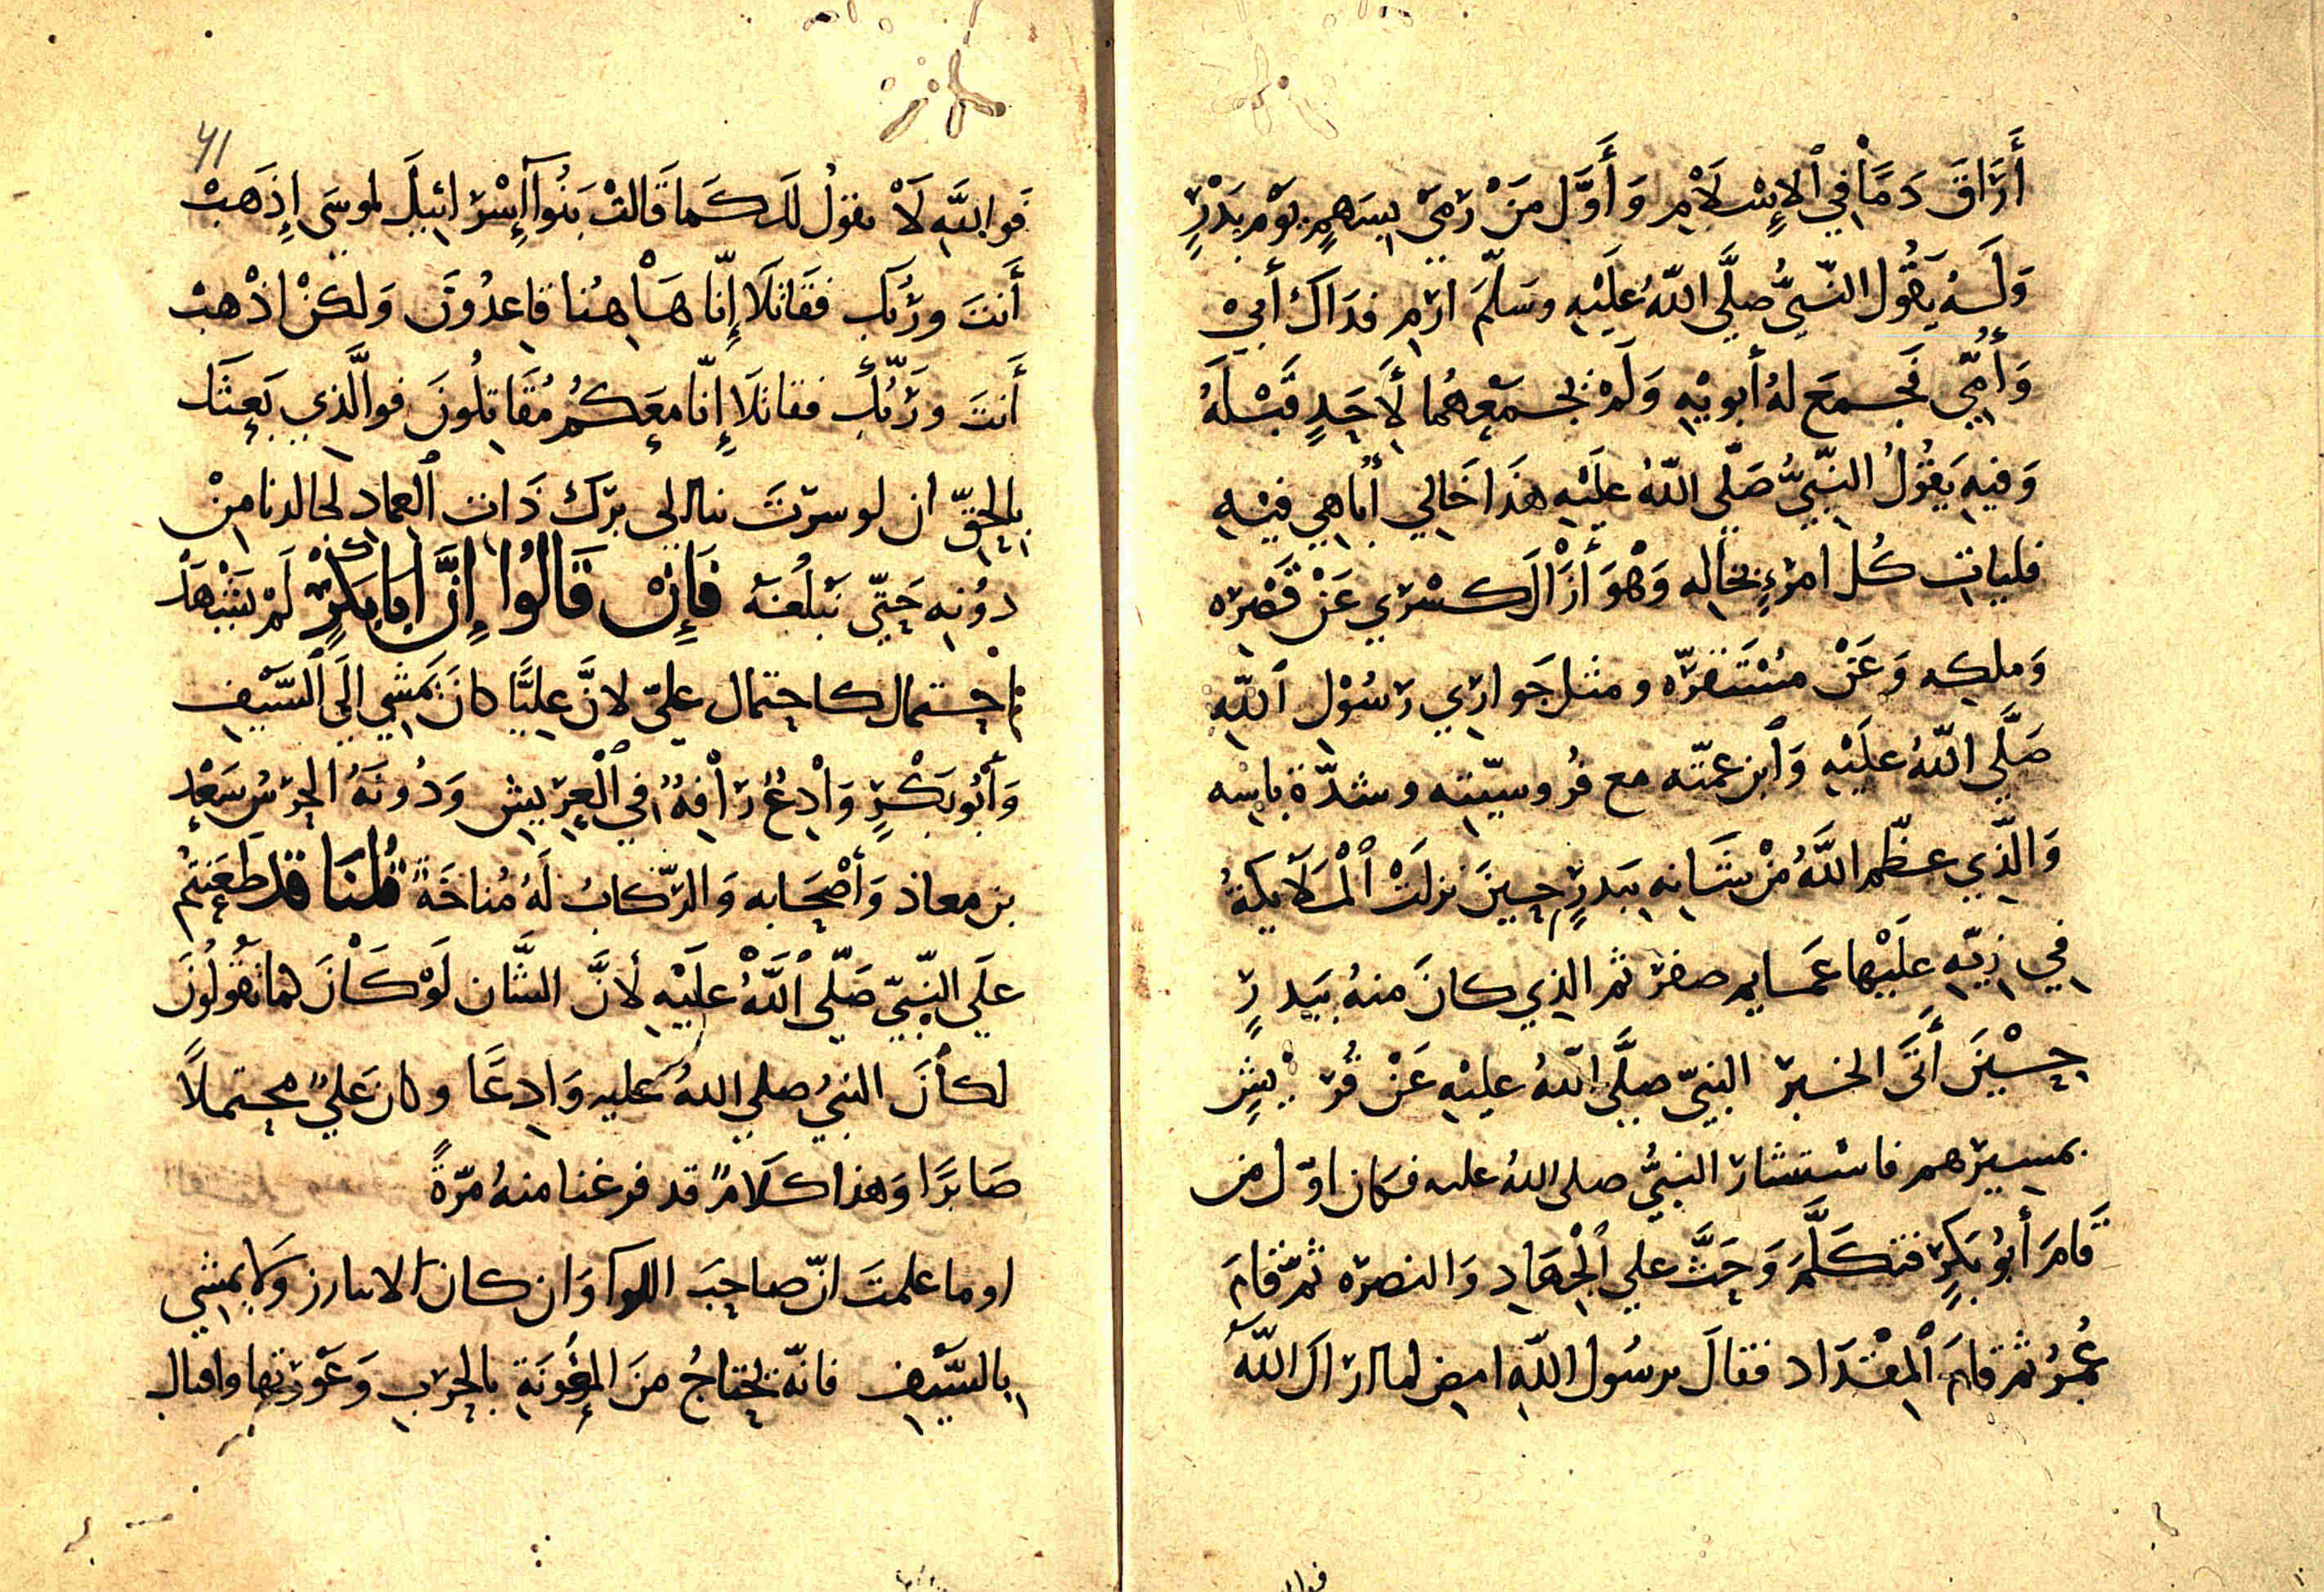 أَرَاقَ دَمًا فِي ٱلإِسْلَامِ وَأَوَّل مَنْ رَمَى بِسَهمٍ يَوْم بَدْرٍ
وَلَهُ يَقُول النَّبيُّ صلَّى اللّهُ عَلَيْهِ وسَلَّمَ ارْمِ فدَاكَ أَبِيْ
وَأُمِّي فَجمعَ لهُ أبويْهِ وَلَمْ يَجْمَعهُما لأَحَدٍ قَبْلَهُ
وَفيهِ يَقُولُ النَّبِيُّ صَلَّى اللّهُ عَلَيْهِ هَذَا خَالِي أُبَاهِي فيْهِ
فليات كُل امرءٍ بخاله وَهْوَ أَزَالَ كسْرَى عَنْ قَصْره
وَملكه وَعَنْ مُسْتَقرّه ومثل حَوارِي رَسُوْل ٱللّهِ
صَلَّى اللّهُ علَيْهِ وَٱبن عمّته مع فُروسيّته وشدّة باسه
وَالَّذِي عظّم اللَّهُ مِنْ شَانِهِ بِبَدرٍ حِينَ نزلَتْ ٱلْمَلَائِكَةُ
فِي زِيّهِ عَلَيْها عَمايم صفر ثم الذِي كانَ منهُ بِبَدرٍ
حِيْنَ أَتَى الخبر النبِيّ صلَّى اللّهُ عليْهِ عَنْ قُرَيْشٍ
بمسِيرهم فاسْتشارَ النبيُّ صلى اللهُ عليه فكان اوّل من
قَامَ أَبُو بَكرٍ فتكَلَّمَ وَحَثَّ على ٱلْجِهَادِ وَالنصره ثمّ قامَ
عُمَرُ ثم قامَ ٱلمِقْدَاد فقالَ يرسُول اللّهِ امضِ لما ارَاكَ اللّهُ
41
فَوَاللَّهِ لَا نقوُلُ لكَ كَما قَالتْ بَنُوا إِسْرَائِيلَ لموسَى إِذَهَبْ
أَنتَ وَرَبُّكَ فقَاتلَا إِنّا هَاهُنا قاعِدُونَ وَلكنْ اذْهبْ
أَنتَ وَرَبُّكَ فقاتلَا إِنّا معَكُم مُقَاتِلُونَ فوالَّذِي بَعثَكَ
بِالحَقّ ان لو سرْتَ بنا الى بَرْك ذَات ٱلعِمادِ لجالدنا مِنْ
دُونِهِ حَتَّى نَبْلُغَهُ فَإِنْ قَالُوا إِنَّ ابَابَكرٍ لَمْ يَتَهَيَّأ
احتمال كاحتمال عليّ لانَّ عليًّا كانَ يَمْشي الَى ٱلسَّيْفِ
وَأَبُو بَكْرٍ وَادِعٌ رَافِهٌ فِي ٱلْعِرِيشِ وَدُونَهُ الحرْسُ سَعْدِ
بن معاذ وَأَصْحَابه وَالرّكابُ لَهُ مُناخَةً قُلْنَا قد طَعَنتُم
علَى النبِيّ صَلَّى ٱللَّهُ علَيْهِ لأنَّ الشَّان لَوْ كَانَ كما تَقُولُونَ
لكانَ النبيُ صلى اللهُ عليه وَادِعًا وكان عَليٌ محتملًا
صَابرًا وَهذا كَلَامٌ قد فرغنا منهُ مرّةً
او ما علمتَ انّ صاحِبَ اللوا وَان كان لا يبارز وَلا يمشي
بِالسَّيْفِ فانّه يحْتاجُ منَ المؤُونَةِ بالحرْبِ وَعَوْرَتِها واقبال